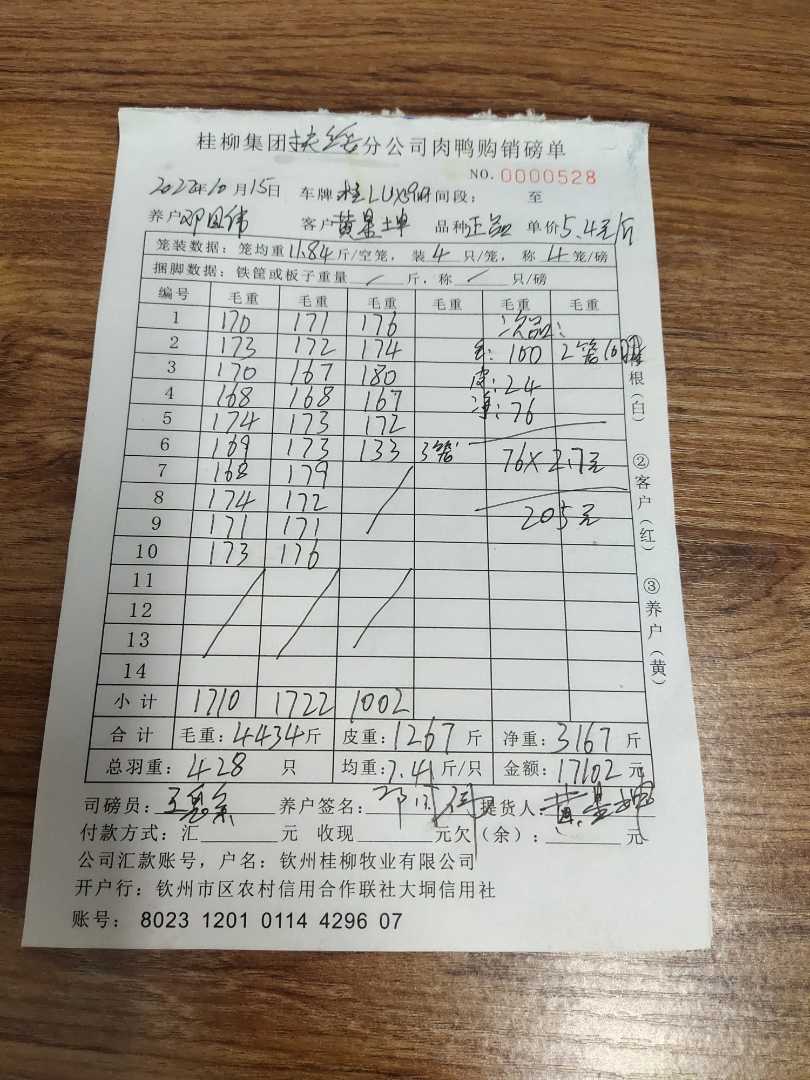 桂柳集团扶绥分公司肉鸭购销磅单
NO.0000528
2022年10月15日 车牌 桂LUX9 时间段: 至
养户 邓 伟 客户 黄景坤 品种 正品 单价 5.4元/斤
笼装数据: 笼均重 11.84 斤/空笼, 装 4 只/笼, 称 4 笼/磅
捆脚数据: 铁筐或板子重量 / 斤, 称 / 只/磅
编号 毛重 毛重 毛重 毛重 毛重 毛重
1 170 171 176 次品:
2 173 172 174 毛: 100 2笼
3 170 167 180 皮: 24
4 168 168 167 净: 76
5 174 173 172
6 169 173 133 3笼 76×2.7元
7 168 179
8 174 172 205元
9 171 171
10 173 176
11
12
13
14
小计 1710 1722 1002
合计 毛重: 4434斤 皮重: 1267 斤 净重: 3167 斤
总羽重: 428 只 均重: 7.41 斤/只 金额: 17102 元
司磅员: 养户签名: 提货人: 黄景坤
付款方式: 汇 元 收现 元 欠(余): 元
公司汇款账号, 户名: 钦州桂柳牧业有限公司
开户行: 钦州市区农村信用合作联社大垌信用社
账号: 8023 1201 0114 4296 07
根(白)
②客户(红)
③养户(黄)